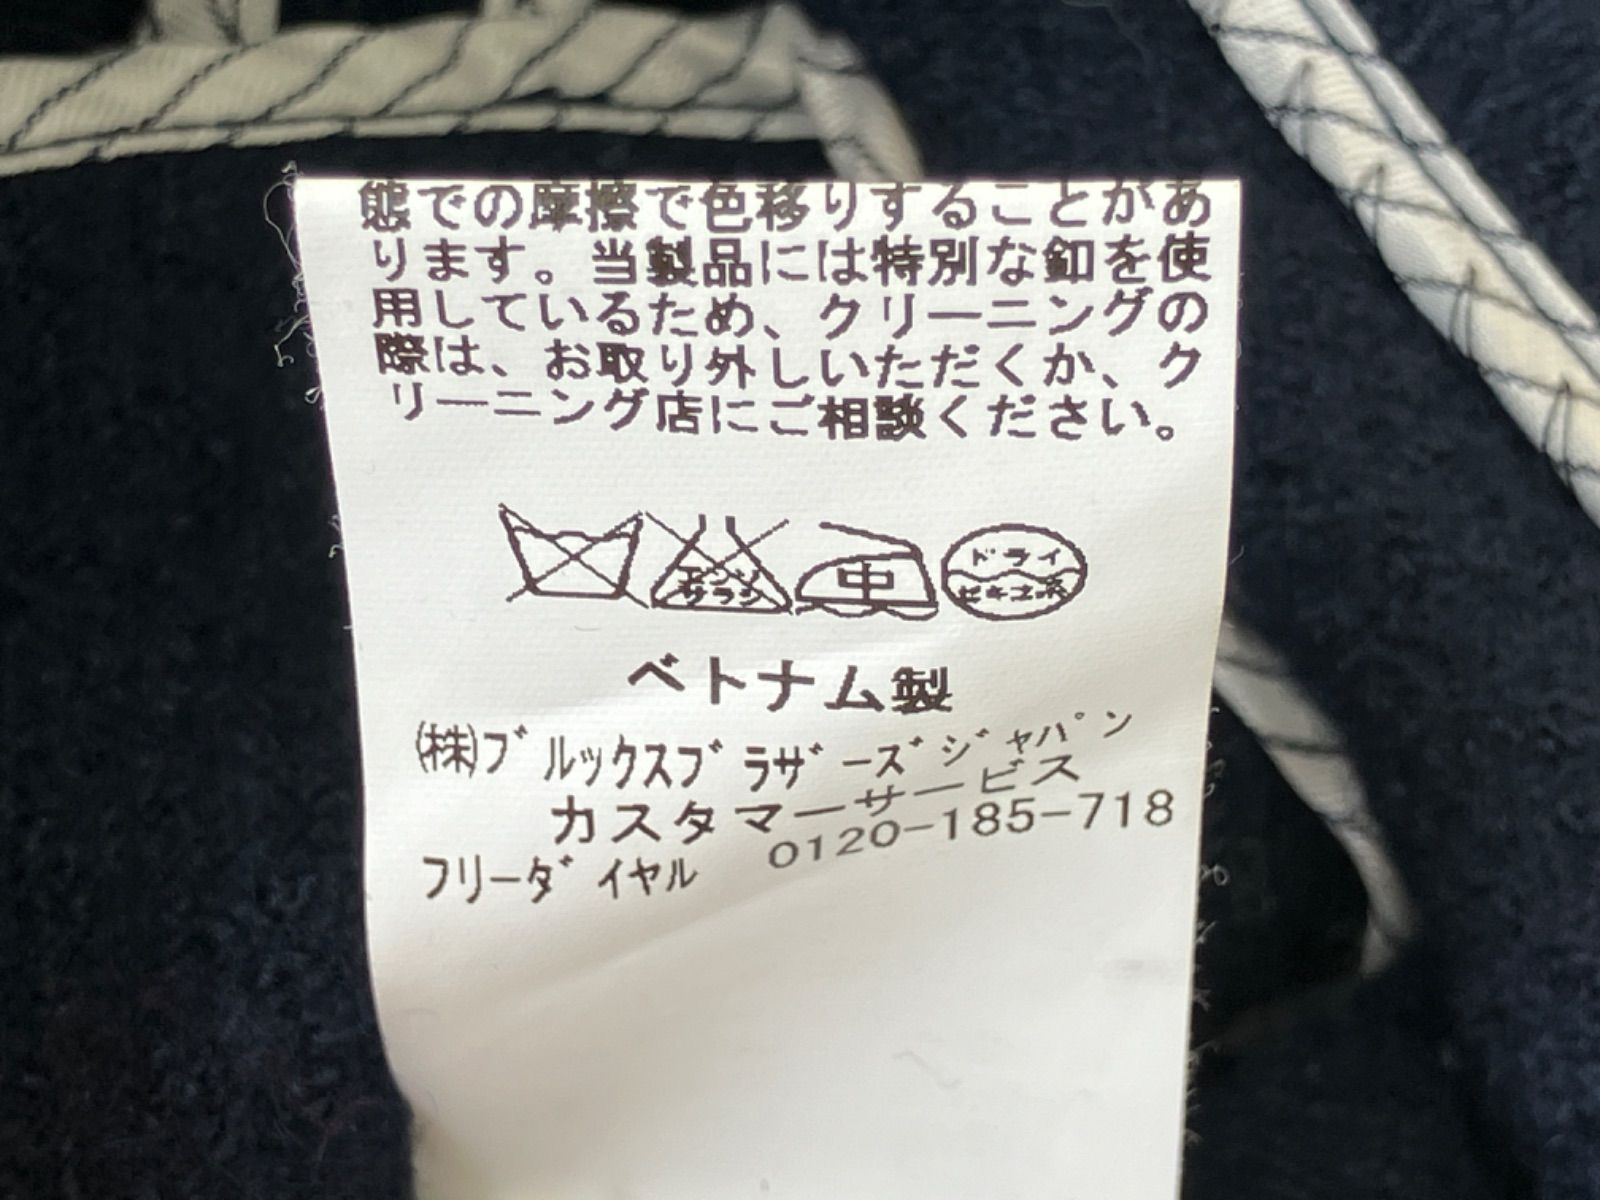 態での摩擦で色移りすることがあ
ります。当製品には特別な釦を使
用しているため、クリーニングの
際は、お取り外しいただくか、ク
リーニング店にご相談ください。
エンソ
サラシ
中
ドライ
セキユ系
ベトナム製
㈱ブルックスブラザーズジャパン
カスタマーサービス
フリーダイヤル 0120-185-718